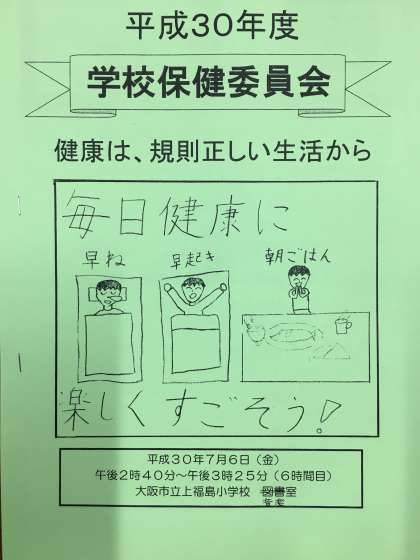 平成30年度
学校保健委員会
健康は、規則正しい生活から
毎日健康に
早ね 早起き 朝ごはん
楽しくすごそう!
平成30年7月6日（金）
午後2時40分〜午後3時25分（6時間目）
大阪市立上福島小学校 図書室
音楽